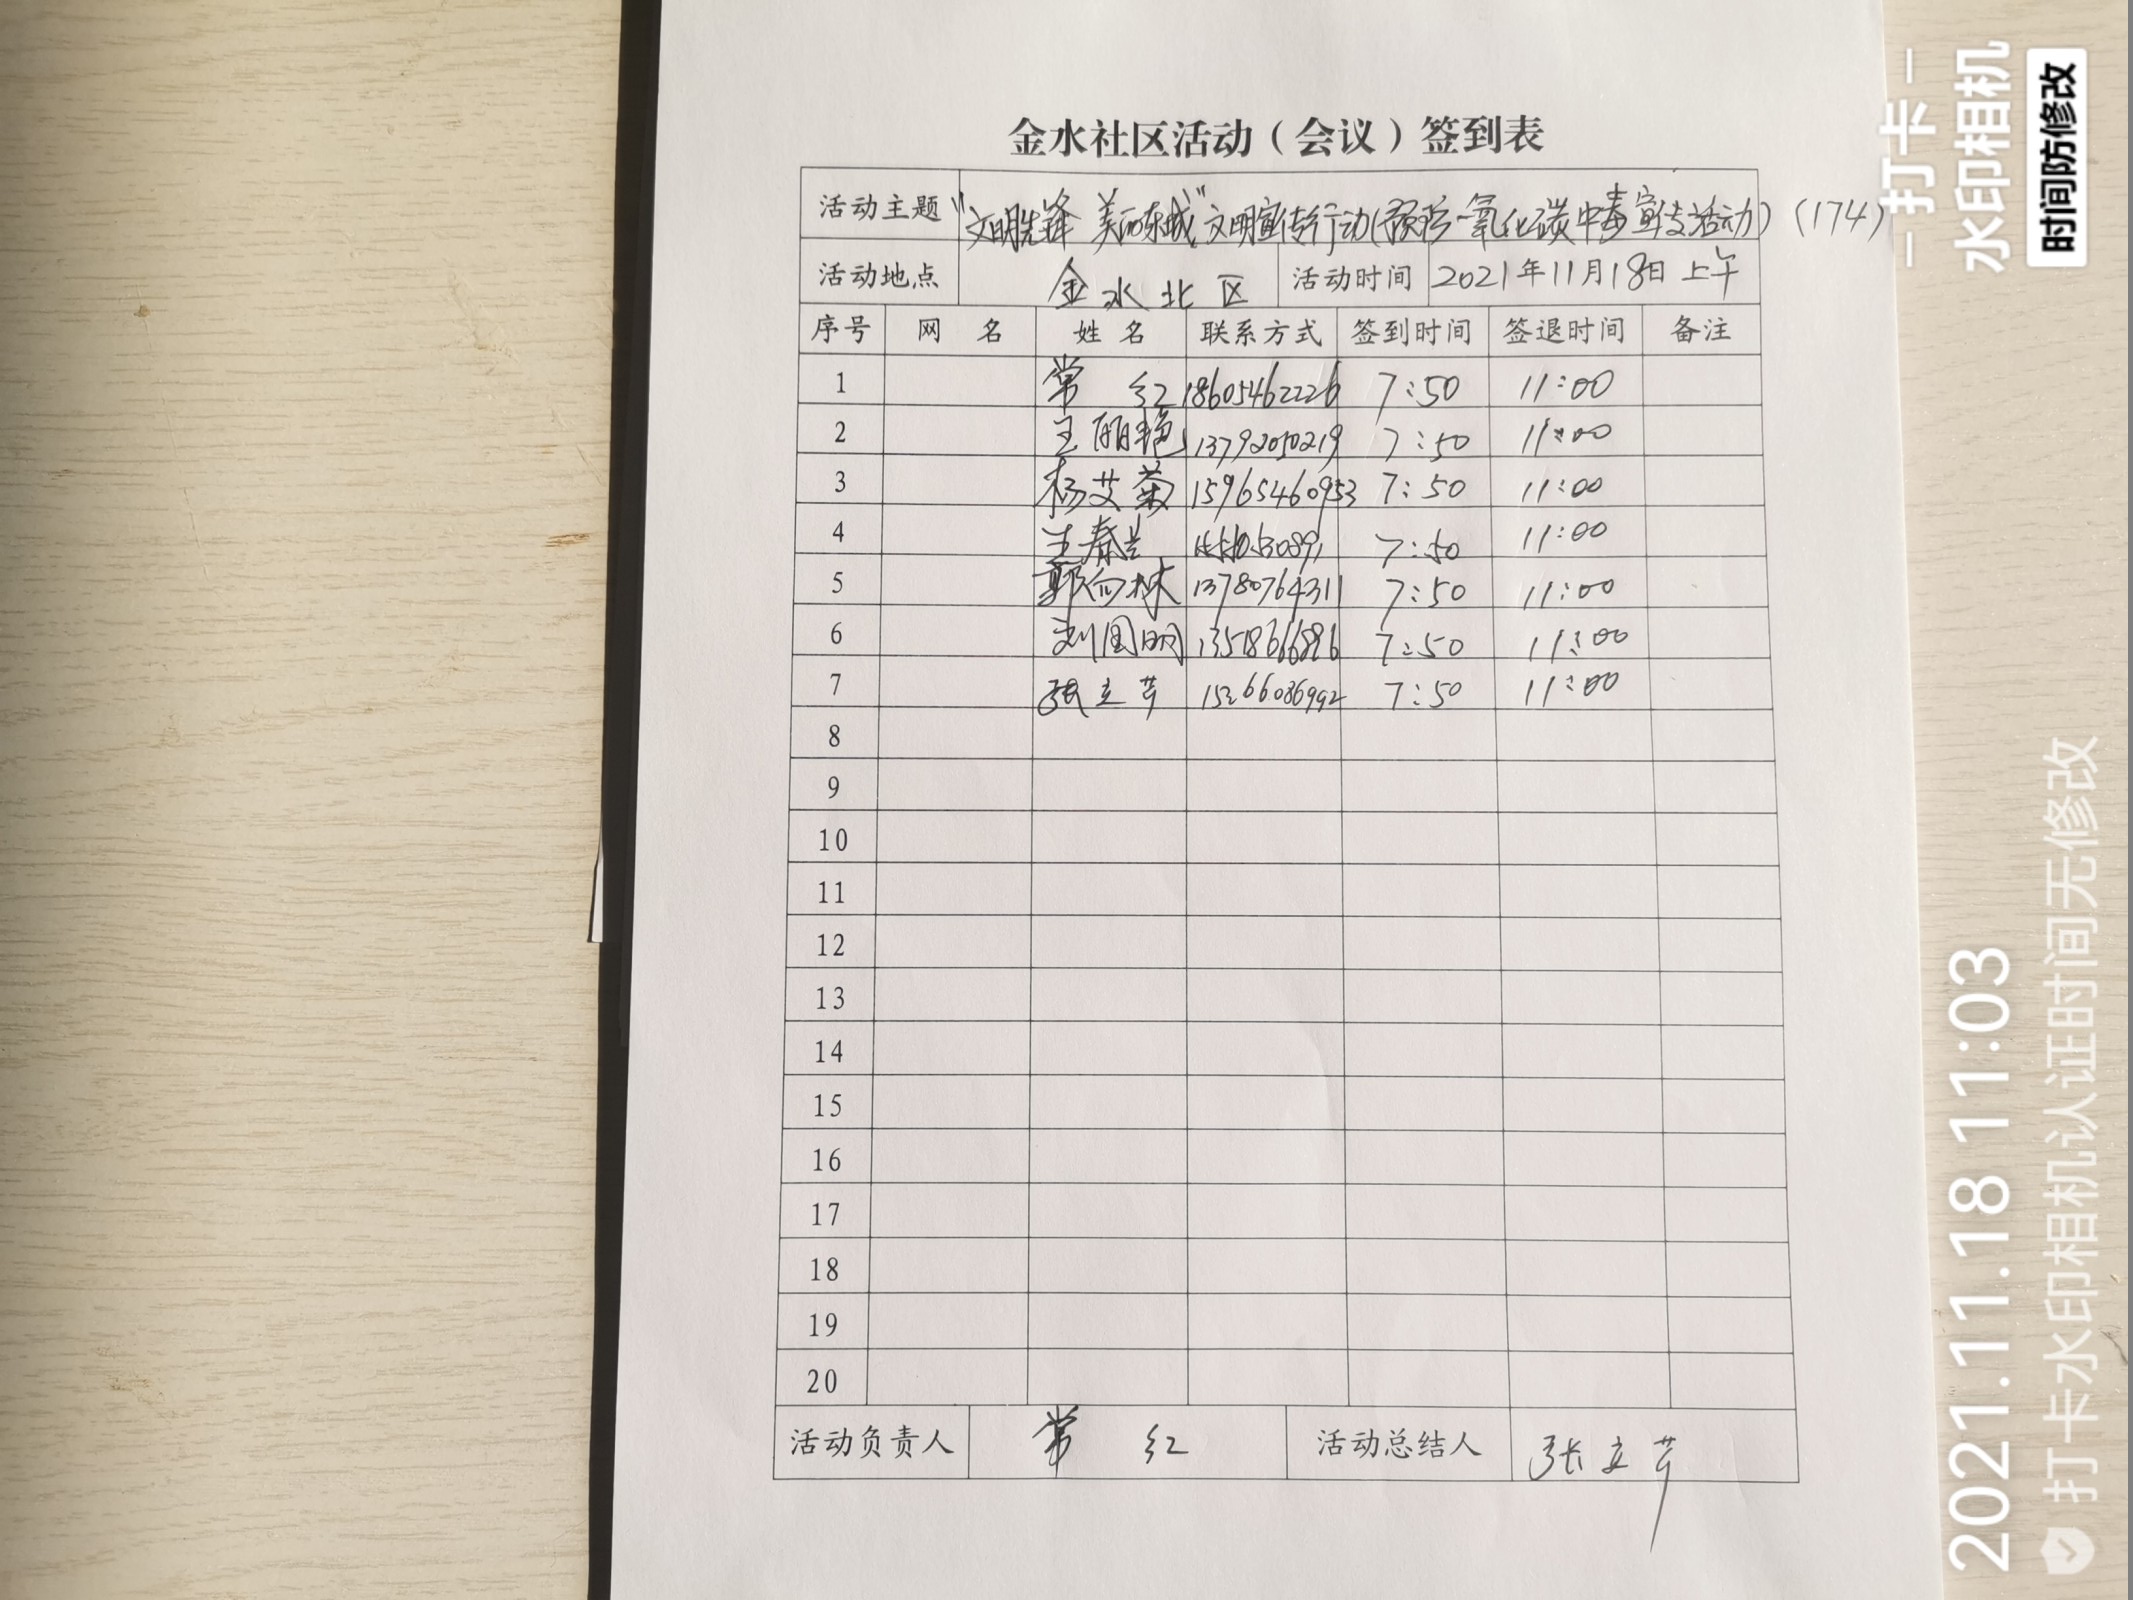 金水社区活动（会议）签到表
活动主题 "文明先锋 美丽东城"文明宣传行动(预防一氧化碳中毒宣传活动)（174）
活动地点 金水北区 活动时间 2021年11月18日上午
序号 网 名 姓 名 联系方式 签到时间 签退时间 备注
1 常 红 18605462226 7:50 11:00
2 王丽艳 13792050219 7:50 11:00
3 杨艾菊 15965460953 7:50 11:00
4 7:50 11:00
5 郭向林 13780764311 7:50 11:00
6 刘国明 7:50 11:00
7 张立芹 15266086992 7:50 11:00
8
9
10
11
12
13
14
15
16
17
18
19
20
活动负责人 常 红 活动总结人 张立芹
打卡
水印相机
时间防修改
2021.11.18 11:03
打卡水印相机认证时间无修改